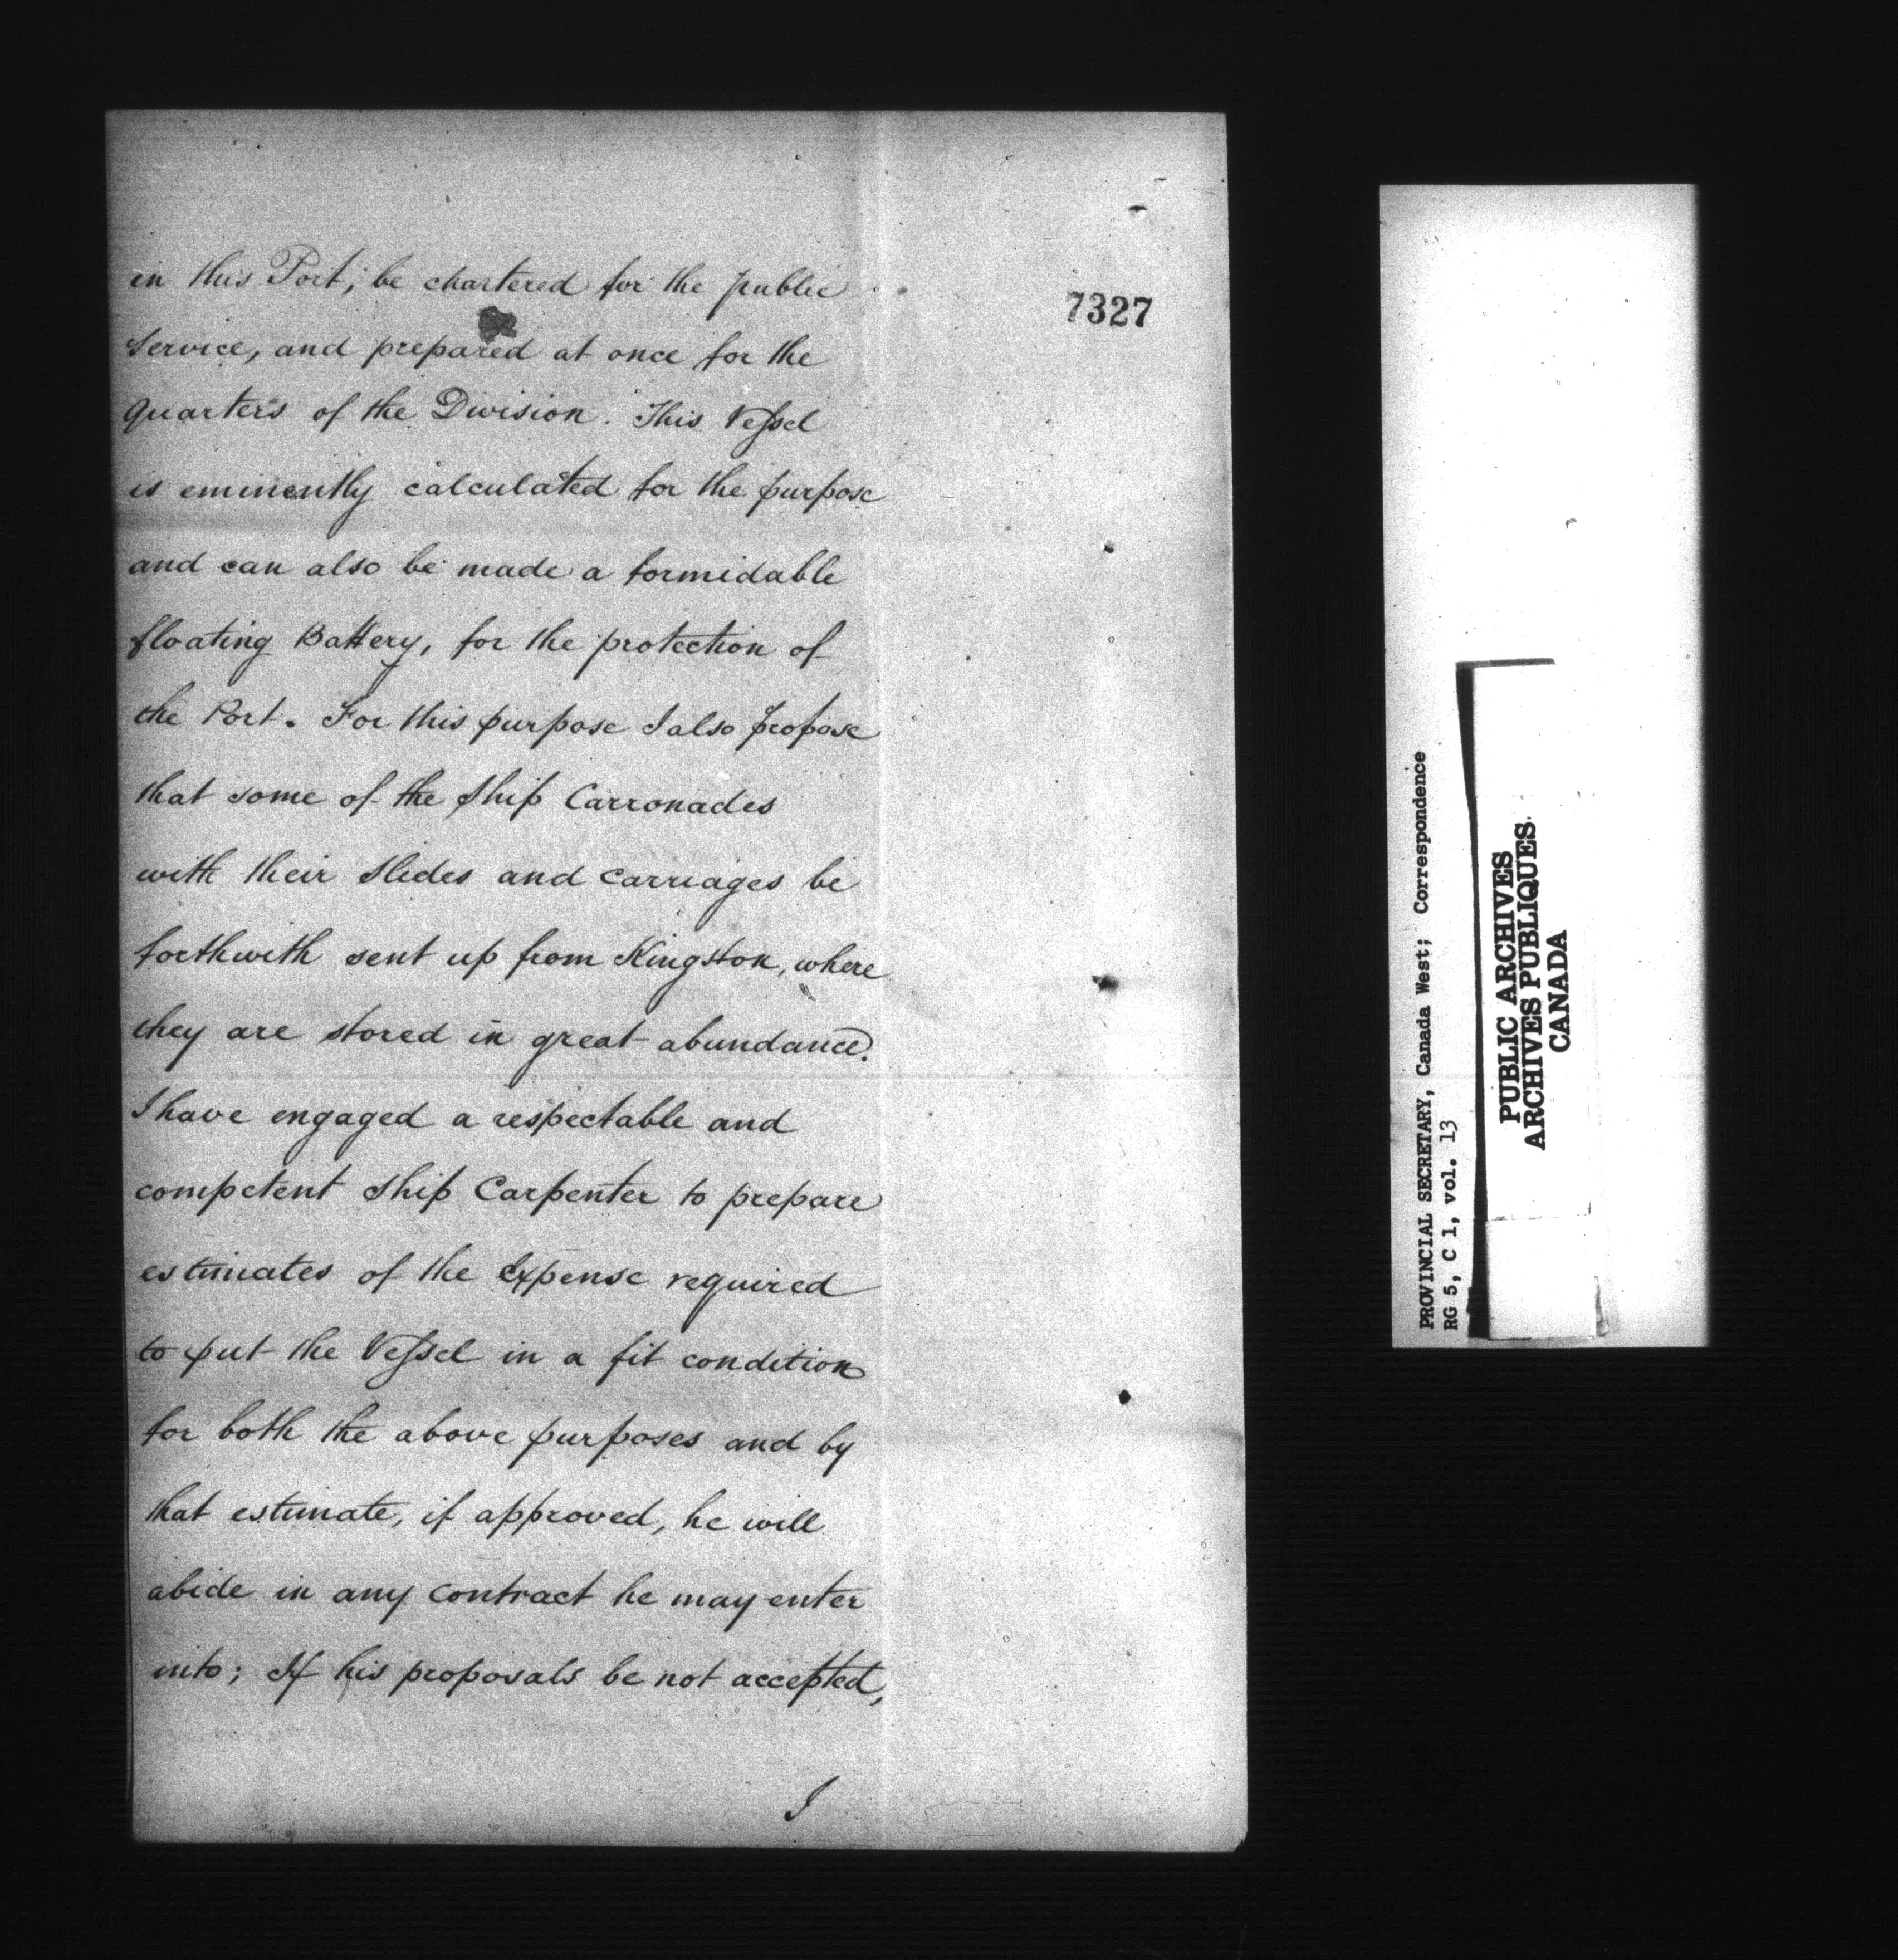 in this Port, be chartered for the public
7327
Service, and prepared at once for the
quarters of the Division. This Vessel
is eminently calculated for the purpose
and can also be made a formidable
floating Battery, for the protection of
the Port. For this purpose I also propose
that some of the Ship Carronades
with their Slides and Carriages be
forthwith sent up from Kingston, where
they are stored in great abundance.
I have engaged a respectable and
competent Ship Carpenter to prepare
estimates of the Expense required
to put the Vessel in a fit condition
for both the above purposes and by
that estimate, if approved, he will
abide in any contract he may enter
into; If his proposals be not accepted,
I
PROVINCIAL SECRETARY, Canada West; Correspondence
RG 5, C 1, vol. 13
PUBLIC ARCHIVES
ARCHIVES PUBLIQUES
CANADA